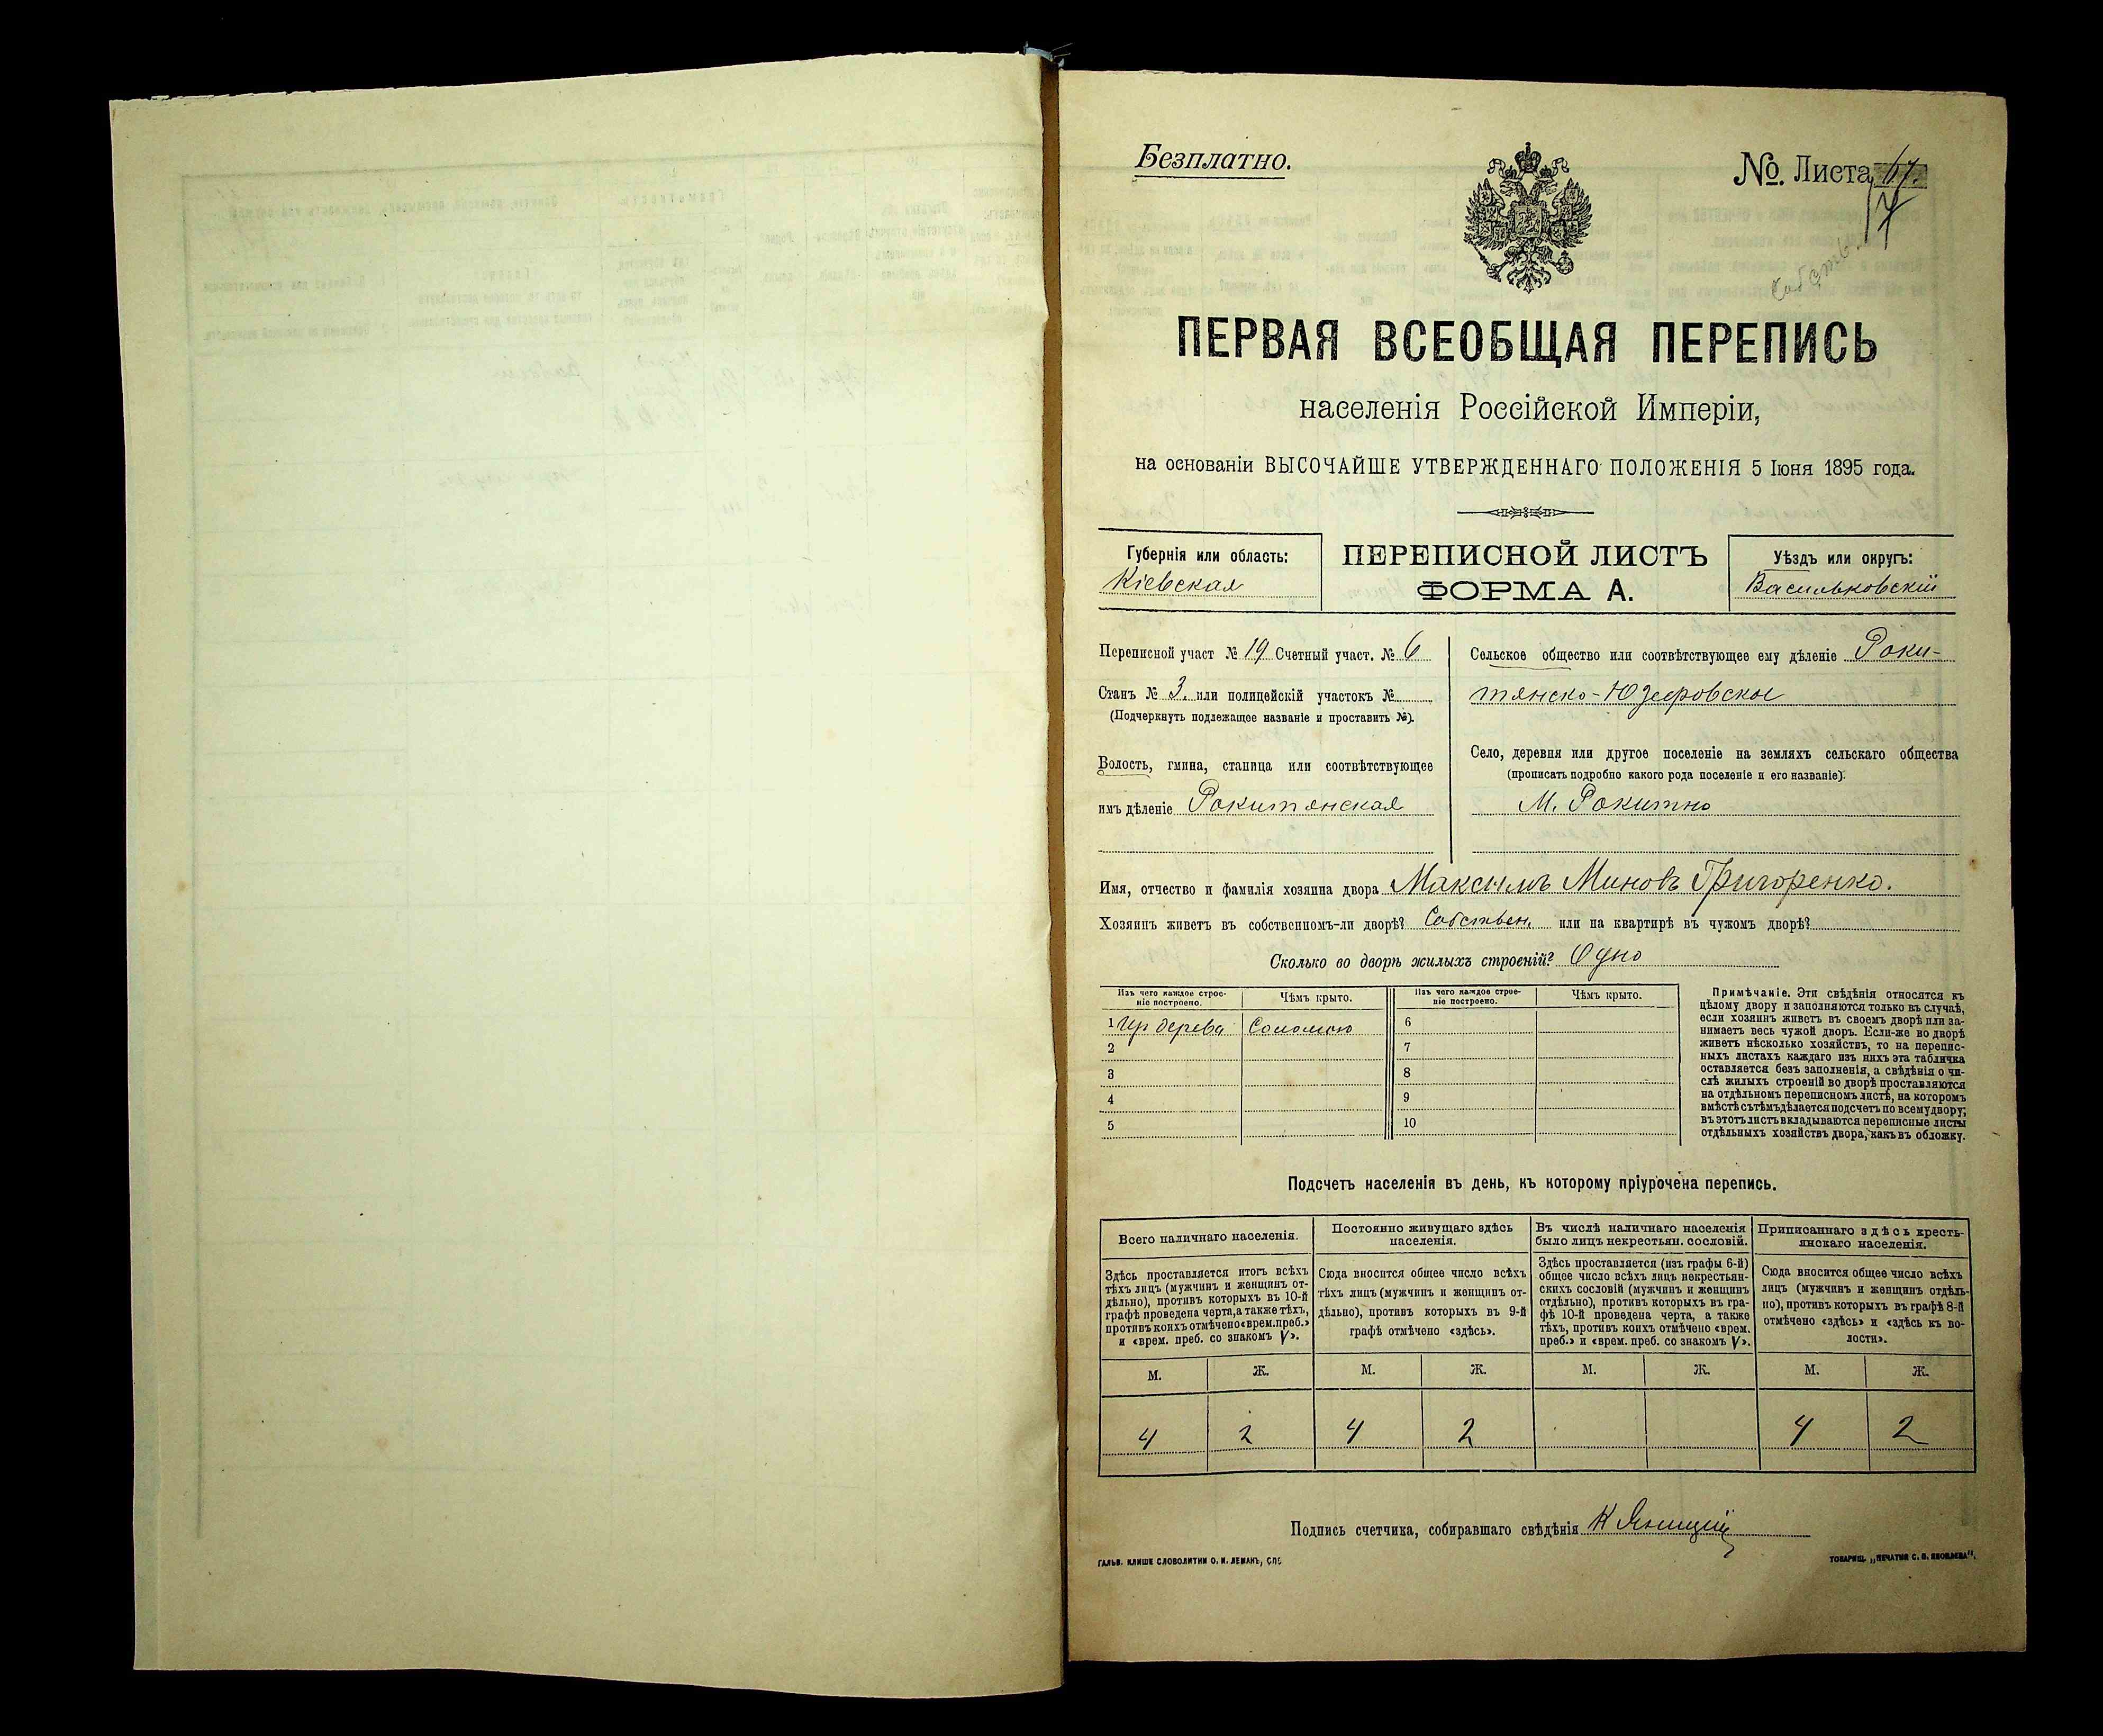 Безплатно.
№. Листа 67.
17
ПЕРВАЯ ВСЕОБЩАЯ ПЕРЕПИСЬ
населенія Россійской Имперіи,
на основаніи ВЫСОЧАЙШЕ УТВЕРЖДЕННАГО ПОЛОЖЕНІЯ 5 Іюня 1895 года.
Губернія или область:
Кіевская
ПЕРЕПИСНОЙ ЛИСТЪ
ФОРМА А.
Уѣздъ или округъ:
Васильковскій
Переписной участ № 19 Счетный участ. № 6
Станъ № 3. или полицейскій участокъ №
(Подчеркнуть подлежащее названіе и проставить №).
Волость, гмина, станица или соотвѣтствующее
имъ дѣленіе Рокитянская
Сельское общество или соотвѣтствующее ему дѣленіе Роки-
тянско-Юзефовское
Село, деревня или другое поселеніе на земляхъ сельскаго общества
(прописать подробно какого рода поселеніе и его названіе).
М. Рокитно
Имя, отчество и фамилія хозяина двора Максимъ Миновъ Григоренко.
Хозяинъ живетъ въ собственномъ-ли дворѣ? Собствен. или на квартирѣ въ чужомъ дворѣ?
Сколько во дворѣ жилыхъ строеній? Одно
Изъ чего каждое строе-
ніе построено.
Чѣмъ крыто.
Изъ чего каждое строе-
ніе построено.
Чѣмъ крыто.
1 Изъ дерева Соломою 6
2 7
3 8
4 9
5 10
Примѣчаніе. Эти свѣдѣнія относятся къ
цѣлому двору и заполняются только въ случаѣ,
если хозяинъ живетъ въ своемъ дворѣ или за-
нимаетъ весь чужой дворъ. Если-же во дворѣ
живетъ нѣсколько хозяйствъ, то на перепис-
ныхъ листахъ каждаго изъ нихъ эта табличка
оставляется безъ заполненія, а свѣдѣнія о чи-
слѣ жилыхъ строеній во дворѣ проставляются
на отдѣльномъ переписномъ листѣ, на которомъ
вмѣстѣ съ тѣмъ дѣлается подсчетъ по всему двору;
въ этотъ листъ вкладываются переписные листы
отдѣльныхъ хозяйствъ двора, какъ въ обложку.
Подсчетъ населенія въ день, къ которому пріурочена перепись.
Всего наличнаго населенія.
Здѣсь проставляется итогъ всѣхъ
тѣхъ лицъ (мужчинъ и женщинъ от-
дѣльно), противъ которыхъ въ 10-й
графѣ проведена черта, а также тѣхъ,
противъ коихъ отмѣчено «врем. преб.»
и «врем. преб. со знакомъ V».
Постоянно живущаго здѣсь
населенія.
Сюда вносится общее число всѣхъ
тѣхъ лицъ (мужчинъ и женщинъ от-
дѣльно), противъ которыхъ въ 9-й
графѣ отмѣчено «здѣсь».
Въ числѣ наличнаго населенія
было лицъ некрестьян. сословій.
Здѣсь проставляется (изъ графы 6-й)
общее число всѣхъ лицъ некрестьян-
скихъ сословій (мужчинъ и женщинъ
отдѣльно), противъ которыхъ въ гра-
фѣ 10-й проведена черта, а также
тѣхъ, противъ коихъ отмѣчено «врем.
преб.» и «врем. преб. со знакомъ V».
Приписаннаго здѣсь кресть-
янскаго населенія.
Сюда вносится общее число всѣхъ
лицъ (мужчинъ и женщинъ отдѣль-
но), противъ которыхъ въ графѣ 8-й
отмѣчено «здѣсь» и «здѣсь къ во-
лости».
М. Ж. М. Ж. М. Ж. М. Ж.
4 2 4 2 4 2
Подпись счетчика, собиравшаго свѣдѣнія К
ГАЛЬВ. КЛИШЕ СЛОВОЛИТНИ О. И. ЛЕМАНЪ, СПБ
ТОВАРИЩ. „ПЕЧАТНЯ С. П. ЯКОВЛЕВА".